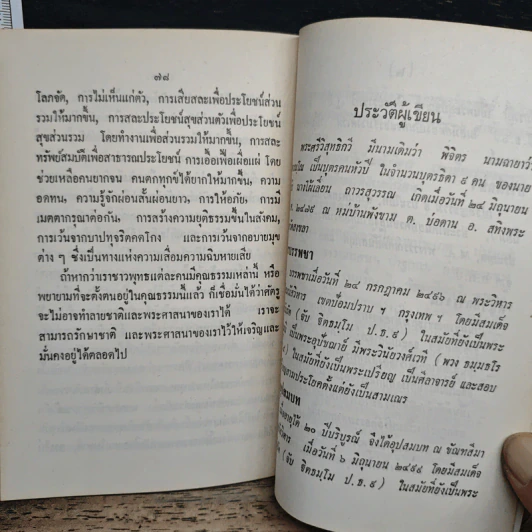 ๗๘
โลภจัด, การไม่เห็นแก่ตัว, การเสียสละเพื่อประโยชน์ส่วน
รวมให้มากขึ้น, การสละประโยชน์สุขส่วนตัวเพื่อประโยชน์
สุขส่วนรวม โดยทำงานเพื่อส่วนรวมให้มากขึ้น, การสละ
ทรัพย์สมบัติเพื่อสาธารณประโยชน์ การเอื้อเฟื้อเผื่อแผ่ โดย
ช่วยเหลือคนยากจน คนตกทุกข์ได้ยากให้มากขึ้น, ความ
อดทน, ความรู้จักผ่อนสั้นผ่อนยาว, การให้อภัย, การมี
เมตตากรุณาต่อกัน, การสร้างความยุติธรรมขึ้นในสังคม,
การเว้นจากบาปทุจริตคดโกง และการเว้นจากอบายมุข
ต่าง ๆ ซึ่งเป็นทางแห่งความเสื่อมความฉิบหายเสีย
ถ้าหากว่าเราชาวพุทธแต่ละคนมีคุณธรรมเหล่านี้ หรือ
พยายามที่จะตั้งตนอยู่ในคุณธรรมนี้แล้ว ก็เชื่อมั่นได้ว่าศัตรู
จะไม่อาจทำลายชาติและพระศาสนาของเราได้ เราจะ
สามารถรักษาชาติ และพระศาสนาของเราไว้ให้เจริญและ
มั่นคงอยู่ได้ตลอดไป
ประวัติผู้เขียน
พระศรีวิสุทธิกวี มีนามเดิมว่า พิจิตร นามฉายา
เป็นบุตรคนหัวปี ในจำนวนบุตรธิดา ๙ คน ของนาย
ถาวรสุวรรณ เกิดเมื่อวันที่ ๒๔ มิถุนายน
๒๔๗๙ ณ หมู่บ้านพังขาม ต. บ่อดาน อ. สทิงพระ
บรรพชา
บรรพชาเมื่อวันที่ ๒๔ กรกฎาคม ๒๔๙๖ ณ พระวิหาร
เขตป้อมปราบ ฯ กรุงเทพ ฯ โดยมีสมเด็จ
(จับ ฐิตธมฺโม ป.ธ.๙) ในสมัยที่ยังเป็นพระ
เป็นพระอุปัชฌาย์ มีพระวินัยวงศ์เวที (พวง ธมฺมธโร
ในสมัยที่ยังเป็นพระเปรียญ เป็นศีลาจารย์ และสอบ
ประโยคตั้งแต่ยังเป็นสามเณร
อายุได้ ๒๐ ปีบริบูรณ์ จึงได้อุปสมบท ณ ขัณฑสีมา
เมื่อวันที่ ๖ มิถุนายน ๒๔๙๙ โดยมีสมเด็จ
(จับ ฐิตธมฺโม ป.ธ.๙) ในสมัยที่ยังเป็นพระ